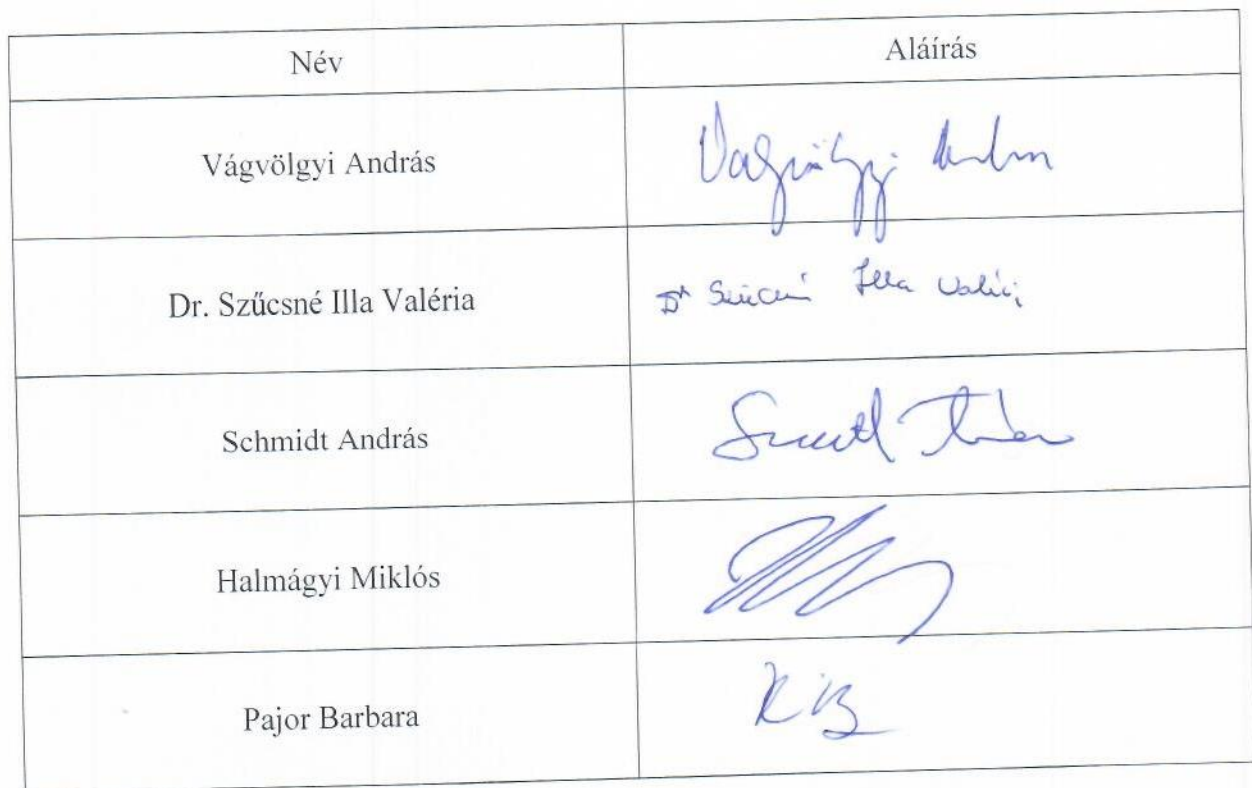 Név Aláírás
Vágvölgyi András Vágvölgyi András
Dr. Szűcsné Illa Valéria Dr Szűcsné Illa Valéria
Schmidt András
Halmágyi Miklós
Pajor Barbara